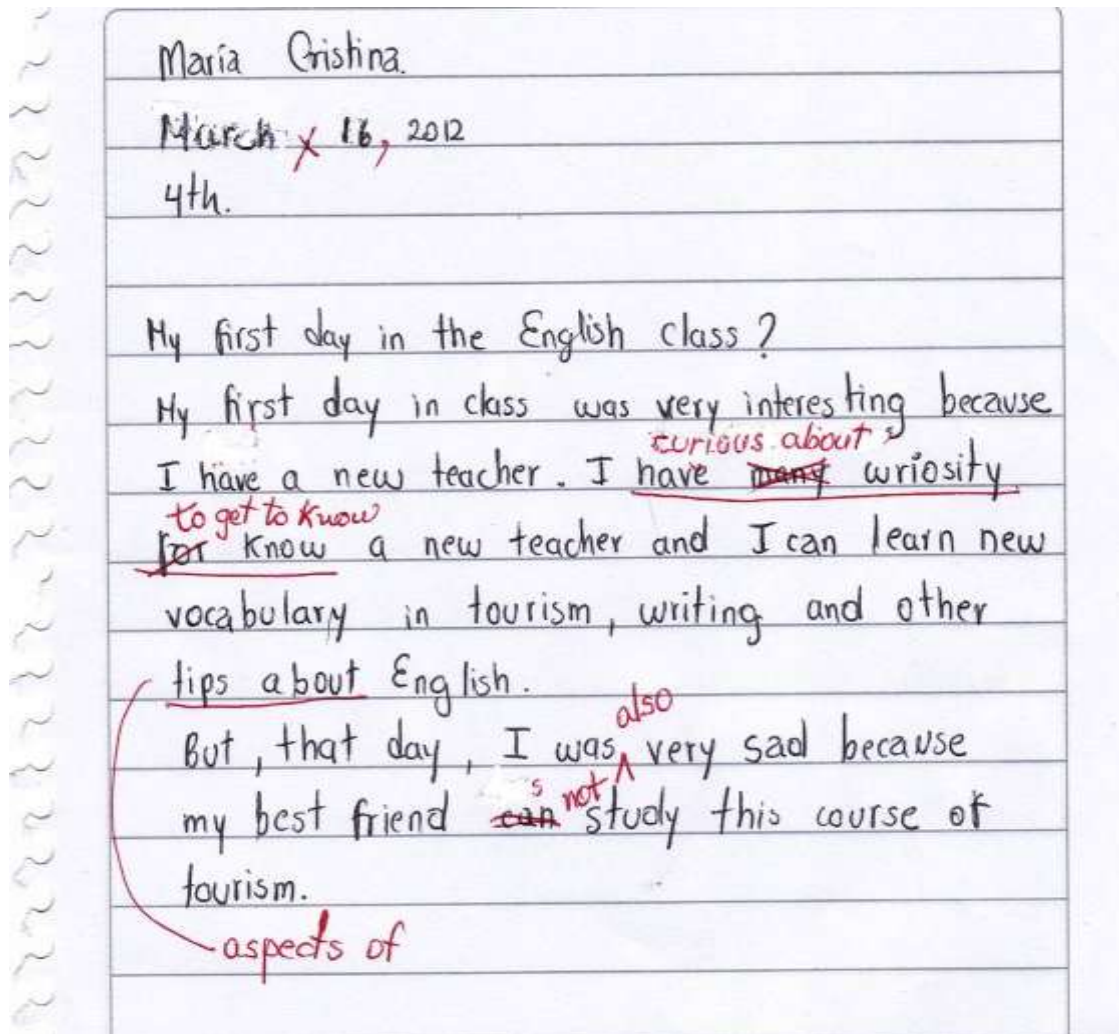 María Cristina.
March x 16, 2012
4th.
My first day in the English class?
My first day in class was very interesting because
curious about s
I have a new teacher. I have many curiosity
to get to know
for know a new teacher and I can learn new
vocabulary in tourism, writing and other
tips about English.
also
But, that day, I was very sad because
s not
my best friend can study this course of
tourism.
aspects of